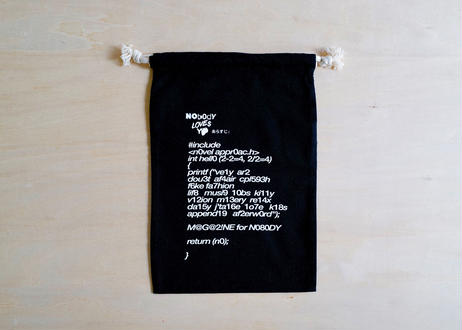 NOb0dY
LOVES
Y♥ あらすじ:
#include
<n0vel appr0ac.h>
int hell0 (2-2=4, 2/2=4)
{
printf ("ve1y ar2
dou3t af4air cpl593h
f6ke fa7hion
lif8 musi9 10bs ki11y
v12ion m13ery re14x
da15y j'ta16e 1o7e k18s
append19 af2erw0rd");
M@G@2!NE for N080DY
return (n0);
}